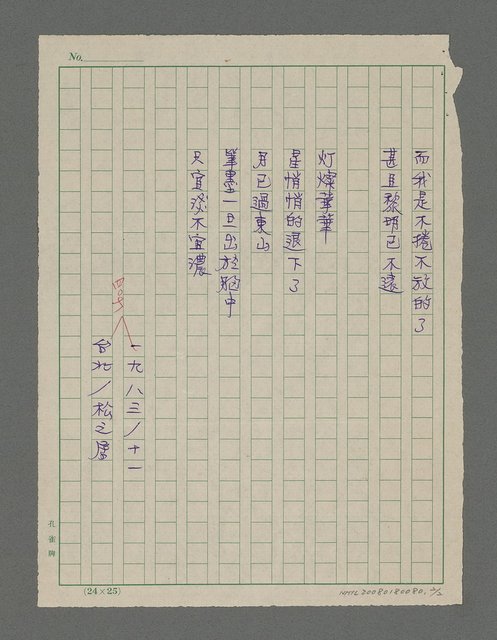 No.
而我是不捲不放的了
甚且黎明已不遠
灯燦華華
星悄悄的退下了
月已過東山
筆墨一旦出於胸中
只宜淡不宜濃
一九八三/十一
台北/松之屋
孔雀牌
(24×25)